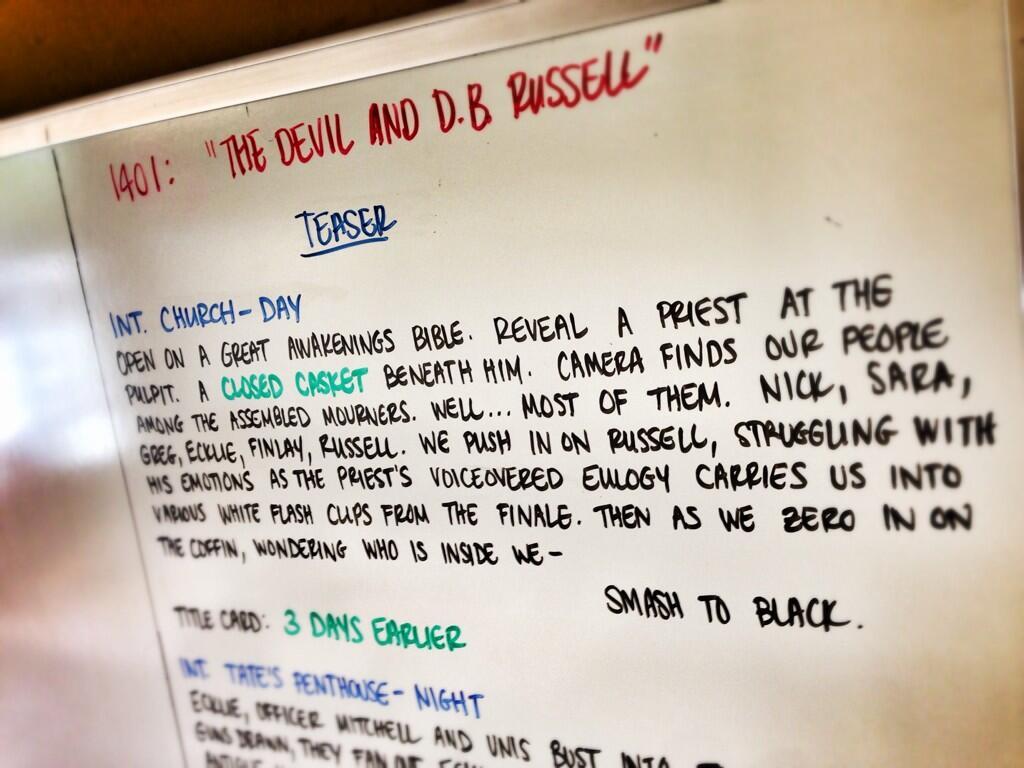 1401: "THE DEVIL AND D.B. RUSSELL"
TEASER
INT. CHURCH - DAY
OPEN ON A GREAT AWAKENINGS BIBLE. REVEAL A PRIEST AT THE
PULPIT. A CLOSED CASKET BENEATH HIM. CAMERA FINDS OUR PEOPLE
AMONG THE ASSEMBLED MOURNERS. WELL... MOST OF THEM. NICK, SARA,
GREG, ECKLIE, FINLAY, RUSSELL. WE PUSH IN ON RUSSELL, STRUGGLING WITH
HIS EMOTIONS AS THE PRIEST'S VOICEOVERED EULOGY CARRIES US INTO
VARIOUS WHITE FLASH CLIPS FROM THE FINALE. THEN AS WE ZERO IN ON
THE COFFIN, WONDERING WHO IS INSIDE WE -
SMASH TO BLACK.
TITLE CARD: 3 DAYS EARLIER
INT. TATE'S PENTHOUSE - NIGHT
ECKLIE, OFFICER MITCHELL AND UNIS BUST INTO
GUNS DRAWN, THEY FAN OUT